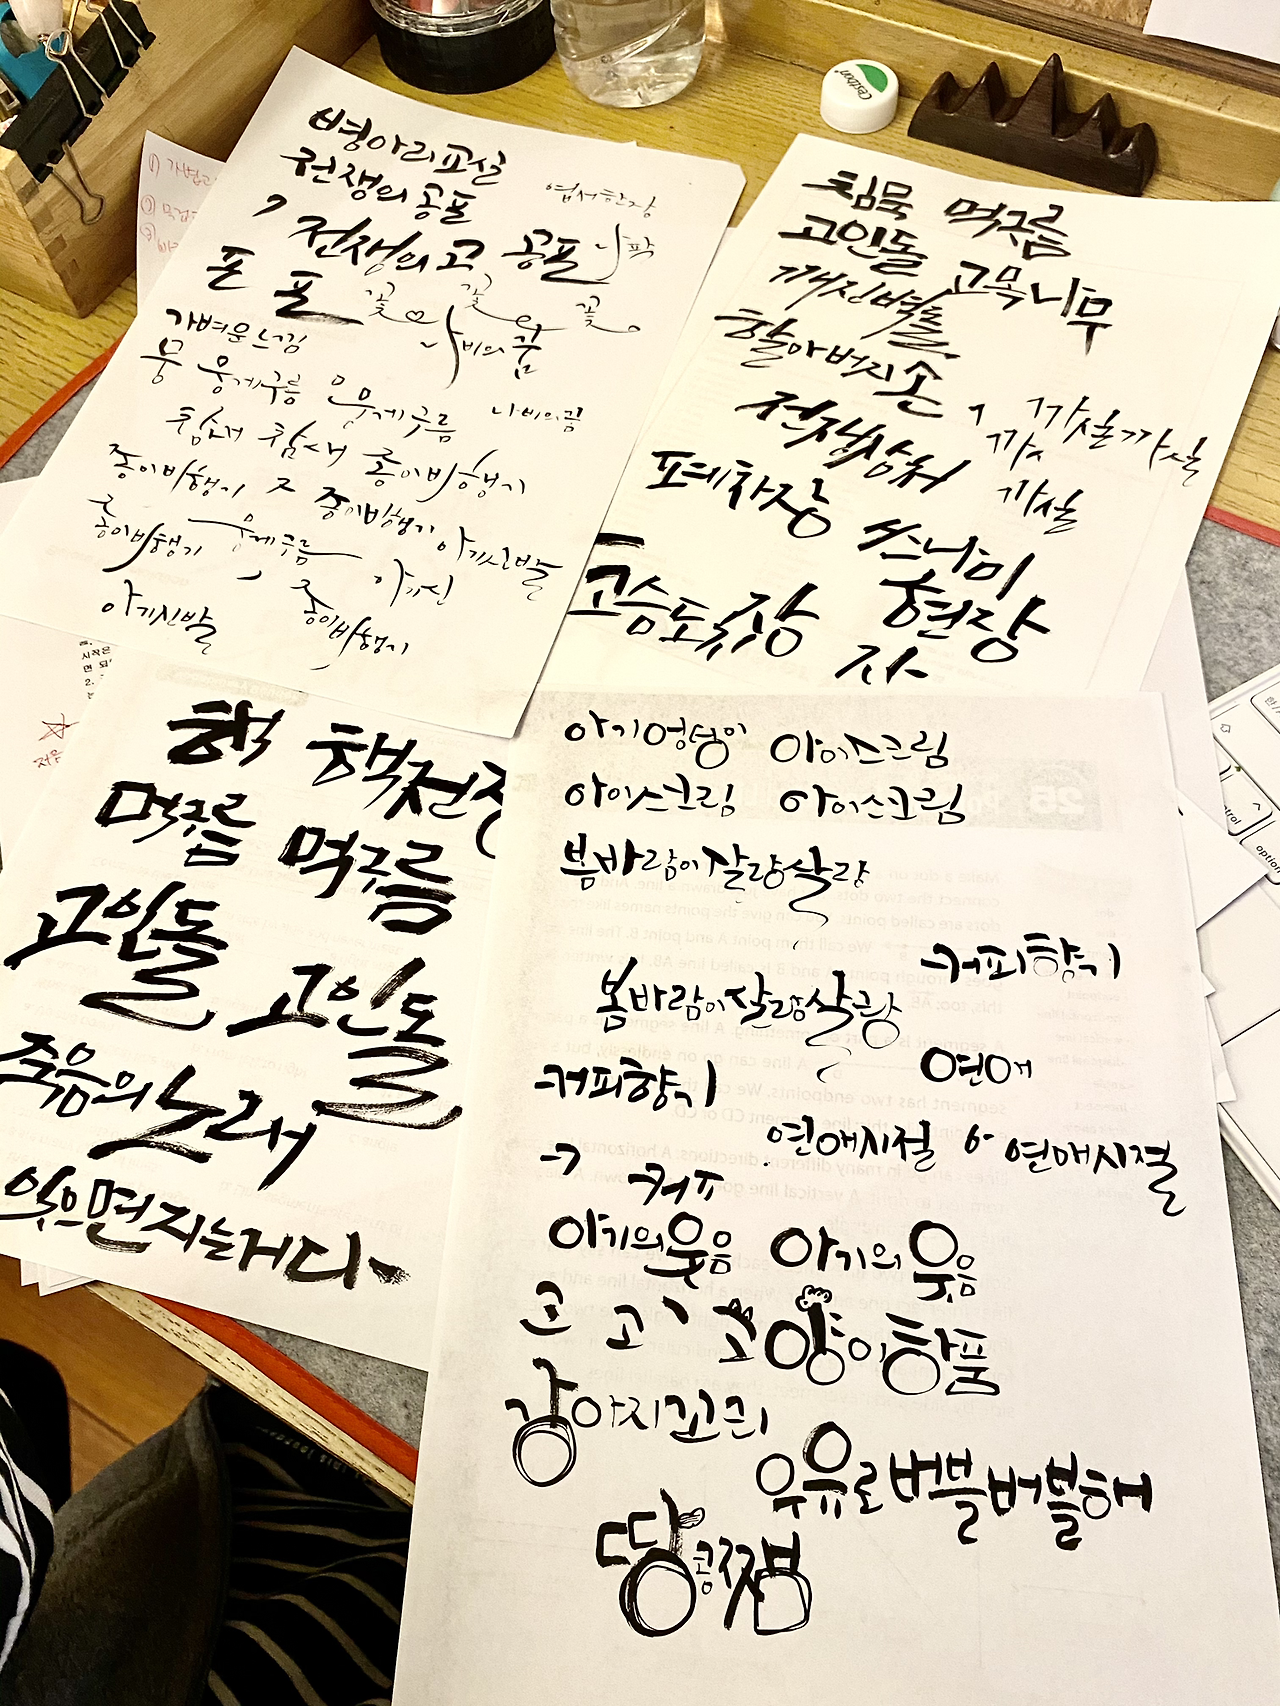 병아리교실
전쟁의 공포
엽서한장
, 전쟁의 고 공포 나팍
포 폴 꽃 꽃 꽃
나비의 꿈
가벼운느낌
뭉 뭉게구름 으 뭉게구름 나비의꿈
참새 참새 종이비행기
종이비행기 ㅈ 종이비행기 아기신발
종이비행기 뭉게구름 아기신
아기신발 종이비행기
침묵 먹구름
고인돌 고목나무
깨진벽틀
할아버지 손
까실까실
까
까실
전쟁상처
폐차장 쓰나미
고승도 장 현장
자
핵 핵전쟁
먹구름 먹구름
고인돌 고인돌
죽음의 노래
악으면지는거다
아기엉덩이 아이스크림
아이스크림 아이스크림
봄바람이살랑살랑
커피향기
봄바람이살랑살랑
커피향기 연애
연애시절 연애시절
커 커피
아기의웃음 아기의웃음
고 고 고양이하품
강아지꼬리
우유로버블버블해
땅콩쨈
Cestbon
control
option